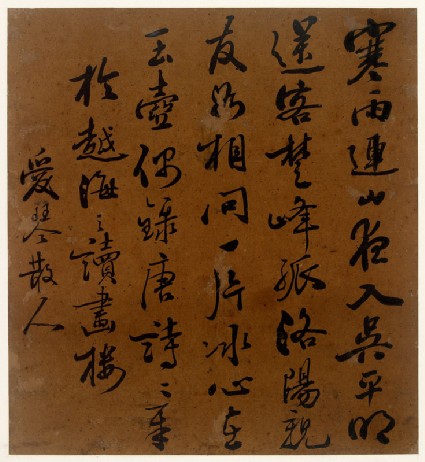 寒雨連山夜入吳平明
送客楚峰孤洛陽親
友如相問一片冰心在
玉壺偶錄唐詩章
於越讀畫樓
愛琴散人